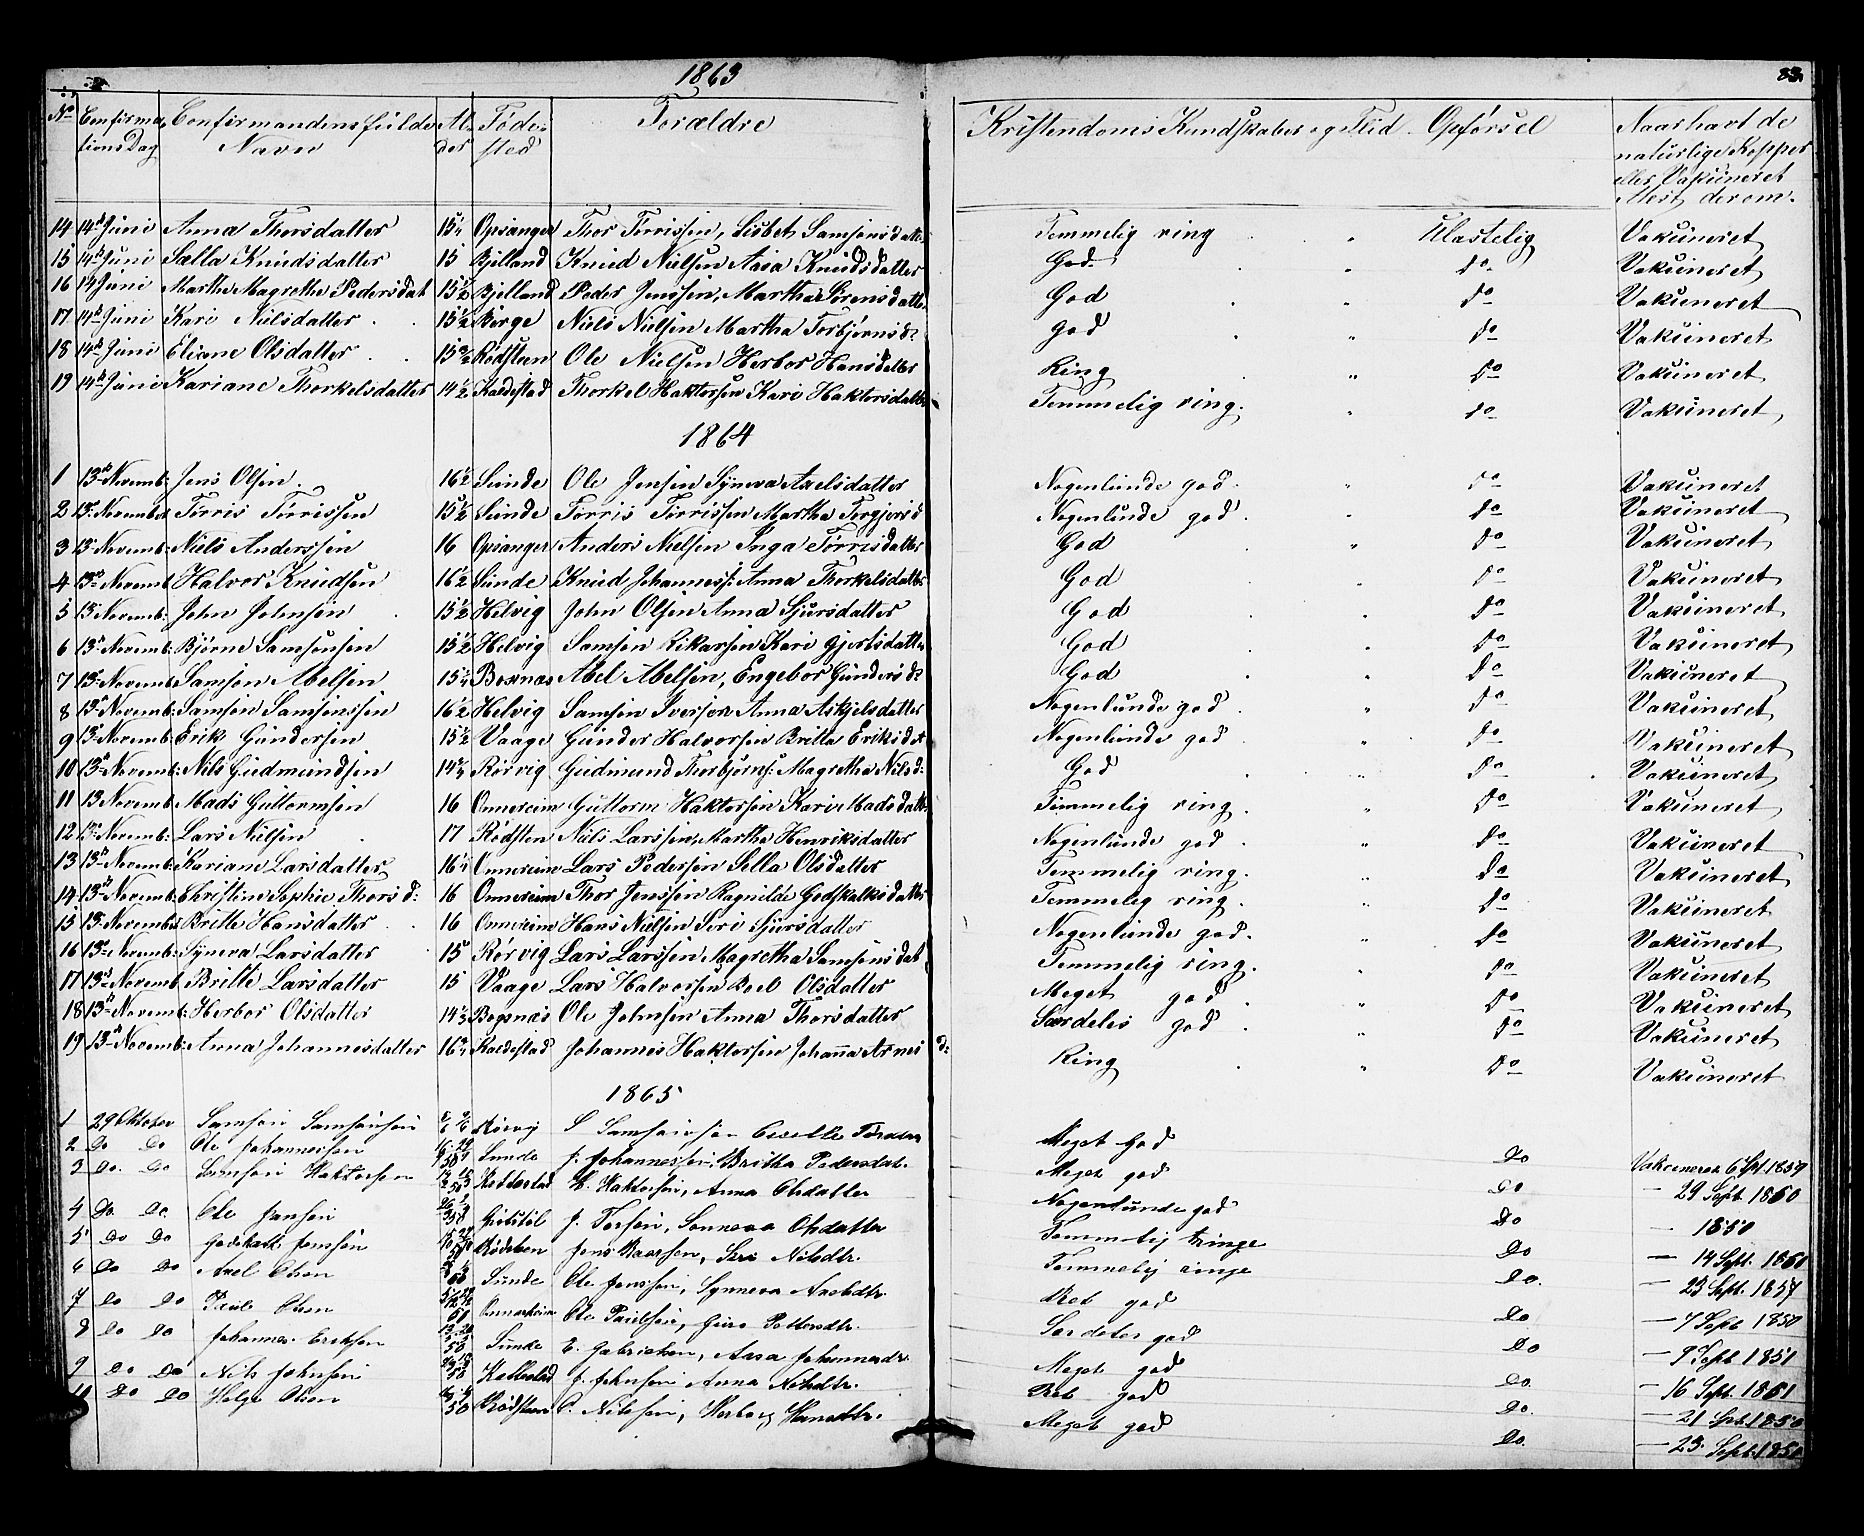 1863
83.
No Confirma- Confirmandens fulde Al- Føde- Forældre Kristendoms Kundskaber og Flid. Opførsel Naar havt de
tions Dag Navn der sted naturlige Kopper
eller Vakcineret
Attest derom.
14 14de Juni Anna Thorsdatter Opsanger Thor Torrissen, Lisbet Samsonsdatter Temmelig ring Ulastelig Vakuineret
15 14de Juni Sælla Knudsdatter 15 Bjelland Knud Nielsen Aasa Knudsdatter God do Vakuineret
16 14 Juni Martha Magrethe Pedersdat 15 1/2 Bjelland Peder Jenssen, Martha Sørensdatter God do Vakuineret
17 14de Juni Kari Nilsdatter 15 1/2 Børge Niels Nielsen Martha Torbjørnsd: god do Vakuineret
18 14de Juni Eliane Olsdatter Rødsteen Ole Nielsen Herbor Hansdatter Ring do Vakuineret
19 14de Juni Kariane Thorkelsdatter 14 1/2 Kaldestad Thorkel Haktorsen Kari Haktorsdatter Temmelig ring. do Vakuineret
1864
1 13de Novemb: Jens Olsen. 16 1/2 Sunde Ole Jensen Syneva Axelsdatter Nogenlunde god. do Vakuineret
2 13de November Torris Torrissen 15 1/2 Sunde Torris Torrissen Martha Torgjersd Nogenlunde god. do Vakuineret
3 13de Novemb: Niels Anderssen 16 Opsanger Anders Nielsen Inga Torrisdatter God do Vakuineret
4 13de Novemb: Halvor Knudsen 16 1/2 Sunde Knud Johanness: Anna Thorkelsdatter God do Vakuineret
5 13de Novemb: John Johnsen 15 1/2 Helvig John Olsen Anna Sjursdatter God do Vakuineret
6 13de Novemb: Bjørne Samsonsen 15 1/2 Helvig Samson Rikarsen Kari Gjertsdatter God do Vakuineret
7 13de Novemb: Samson Abelsen Abel Abelsen, Engebor Gundersd: God do Vakuineret
8 13de Novemb: Samson Samsonssen 16 1/2 Helvig Samson Iversen Anna Askjelsdatter Nogenlunde god. do Vakuineret
9 13de Novemb: Erik Gundersen 15 1/2 Vaage Gunder Halvorsen Britta Eriksdat Nogenlunde god do Vakuineret
10 13de Novemb: Nils Gudmundsen Rørvig Gudmund Thorbjørns: Magretha Nilsd: God do Vakuineret
11 13 Novemb: Mads Guttormsen 16 Ommereim Guttorm Haktorsen Kari Madsdatter Temmelig ring. do Vakuineret
12 13de Novemb: Lars Nielsen 17 Rødsten Niels Larssen, Martha Henriksdatter Nogenlunde god. do Vakuineret
13 13de Novemb: Kariane Larsdatter Ommereim Lars Pedersen Sella Olsdatter Temmelig ring. do Vakuineret
14 13de Novemb: Christine Sophie Thorsd: 16 Ommereim Thor Jenssen Ragnilde Godskalksdatter Temmelig ring. do Vakuineret
15 13 November Britte Hansdatter 16 Ommereim Hans Nielsen Seri Sjursdatter Nogenlunde god. do Vakuineret
16 13de Novemb: Syneva Larsdatter 15 Rørvig Lars Larssen Magretha Samsonsdat Temmelig ring. do Vakuineret
17 13de Novemb Britte Larsdatter 15 Vaage Lars Halvorsen Boel Olsdatter Meget god. do Vakuineret
18 13de Novemb: Herbor Olsdatter 14 1/3 Bogsnæs Ole Johnsen Anna Thorsdatter Særdeles god. do Vakuineret
19 13de Novemb: Anna Johannesdatter Kaldestad Johannes Haktorsen Johanna Arnesd: Ring do Vakuineret
1865
1 29 Oktober Samson Samsonsen Rørvig S Samsonsen Meget God Do Vakcineret 6 Spt. 1859
2 Do Do Ole Johannessen Sunde J. Johannessen, Britha Pedersdat. Meget god Do — 29 Sept 1860
3 Do. Do Samson Haktorsen Kaldestad H. Haktorsen, Anna Olsdatter Nogenlunde god Do — 1850
4 Do. Do. Ole Jansen J. Torsen, Sønneva Olsdatter Temmelig ringe Do — 14 Sept. 1860
5 Do Do Godskalk Jenssen Rødsten Jens Seri Nilsdtr. Temmelig ringe Do. — 23 Sept. 1857
6 Do Do Axel Olsen Sunde Ole Jenssen, Synneva Axelsdtr. Ret god Do — 7 Sept 1850
7 Do Do Paul Olsen Ommereim Ole Paulsen, Guro Pedersdtr. Særdeles god Do — 9 Sept. 1851
8 Do Do Johannes Eriksen Sunde E. Gabrielsen, Aasa Johannesdr. Meget god Do. — 16 Sept. 1861
9 Do Do Nils Johnsen Kaldestad J. Johnsen Anna Nilsdtr. Ret god Do. — 21 Spt. 1850
10 Do Do Helge Olsen Rødsteen O. Nilssen, Herborg Hansdtr. Meget god Do. — 23. Sept. 1850